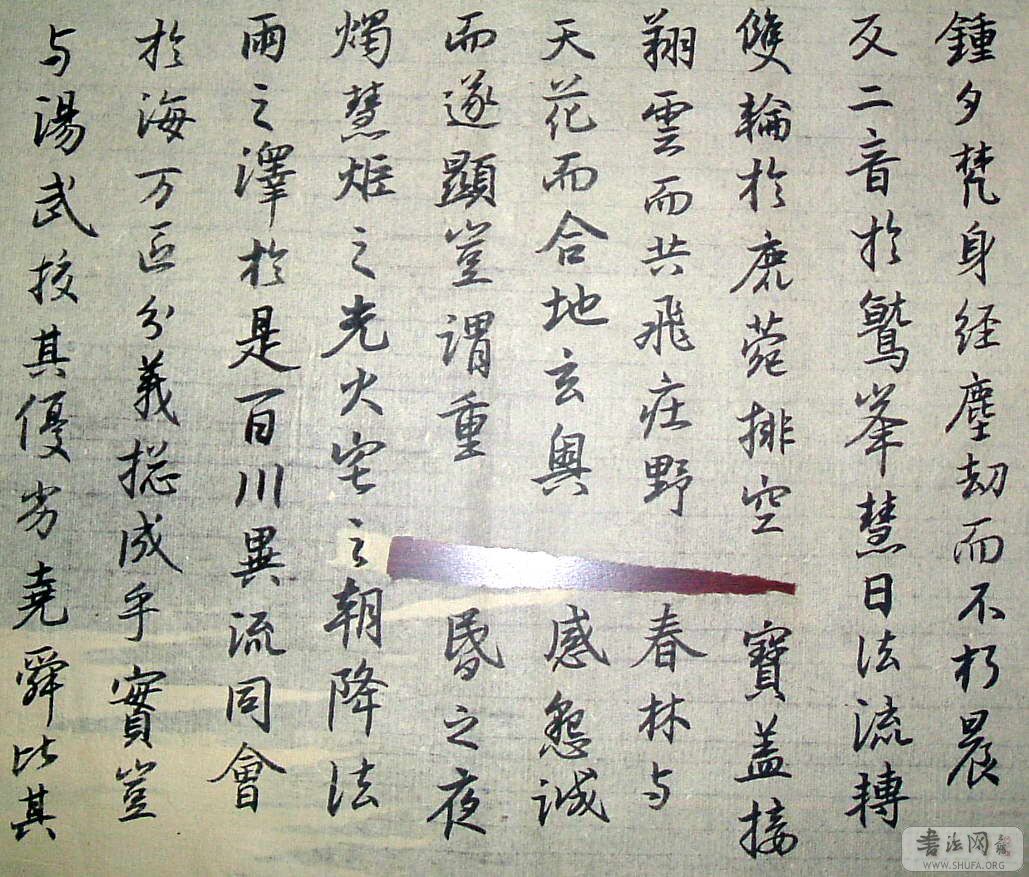 鍾夕梵身経塵劫而不朽晨
交二音於鷲峯慧日法流轉
雙輪於鹿菀排空寶盖接
翔雲而共飛庄野春林与
天花而合地玄奥感懇誠
而遂顯豈謂重昏之夜
燭慧炬之光火宅之朝降法
雨之澤於是百川異流同會
於海万區分義揔成乎實豈
与湯武挍其優劣堯舜比其
书法网
WWW.SHUFA.ORG